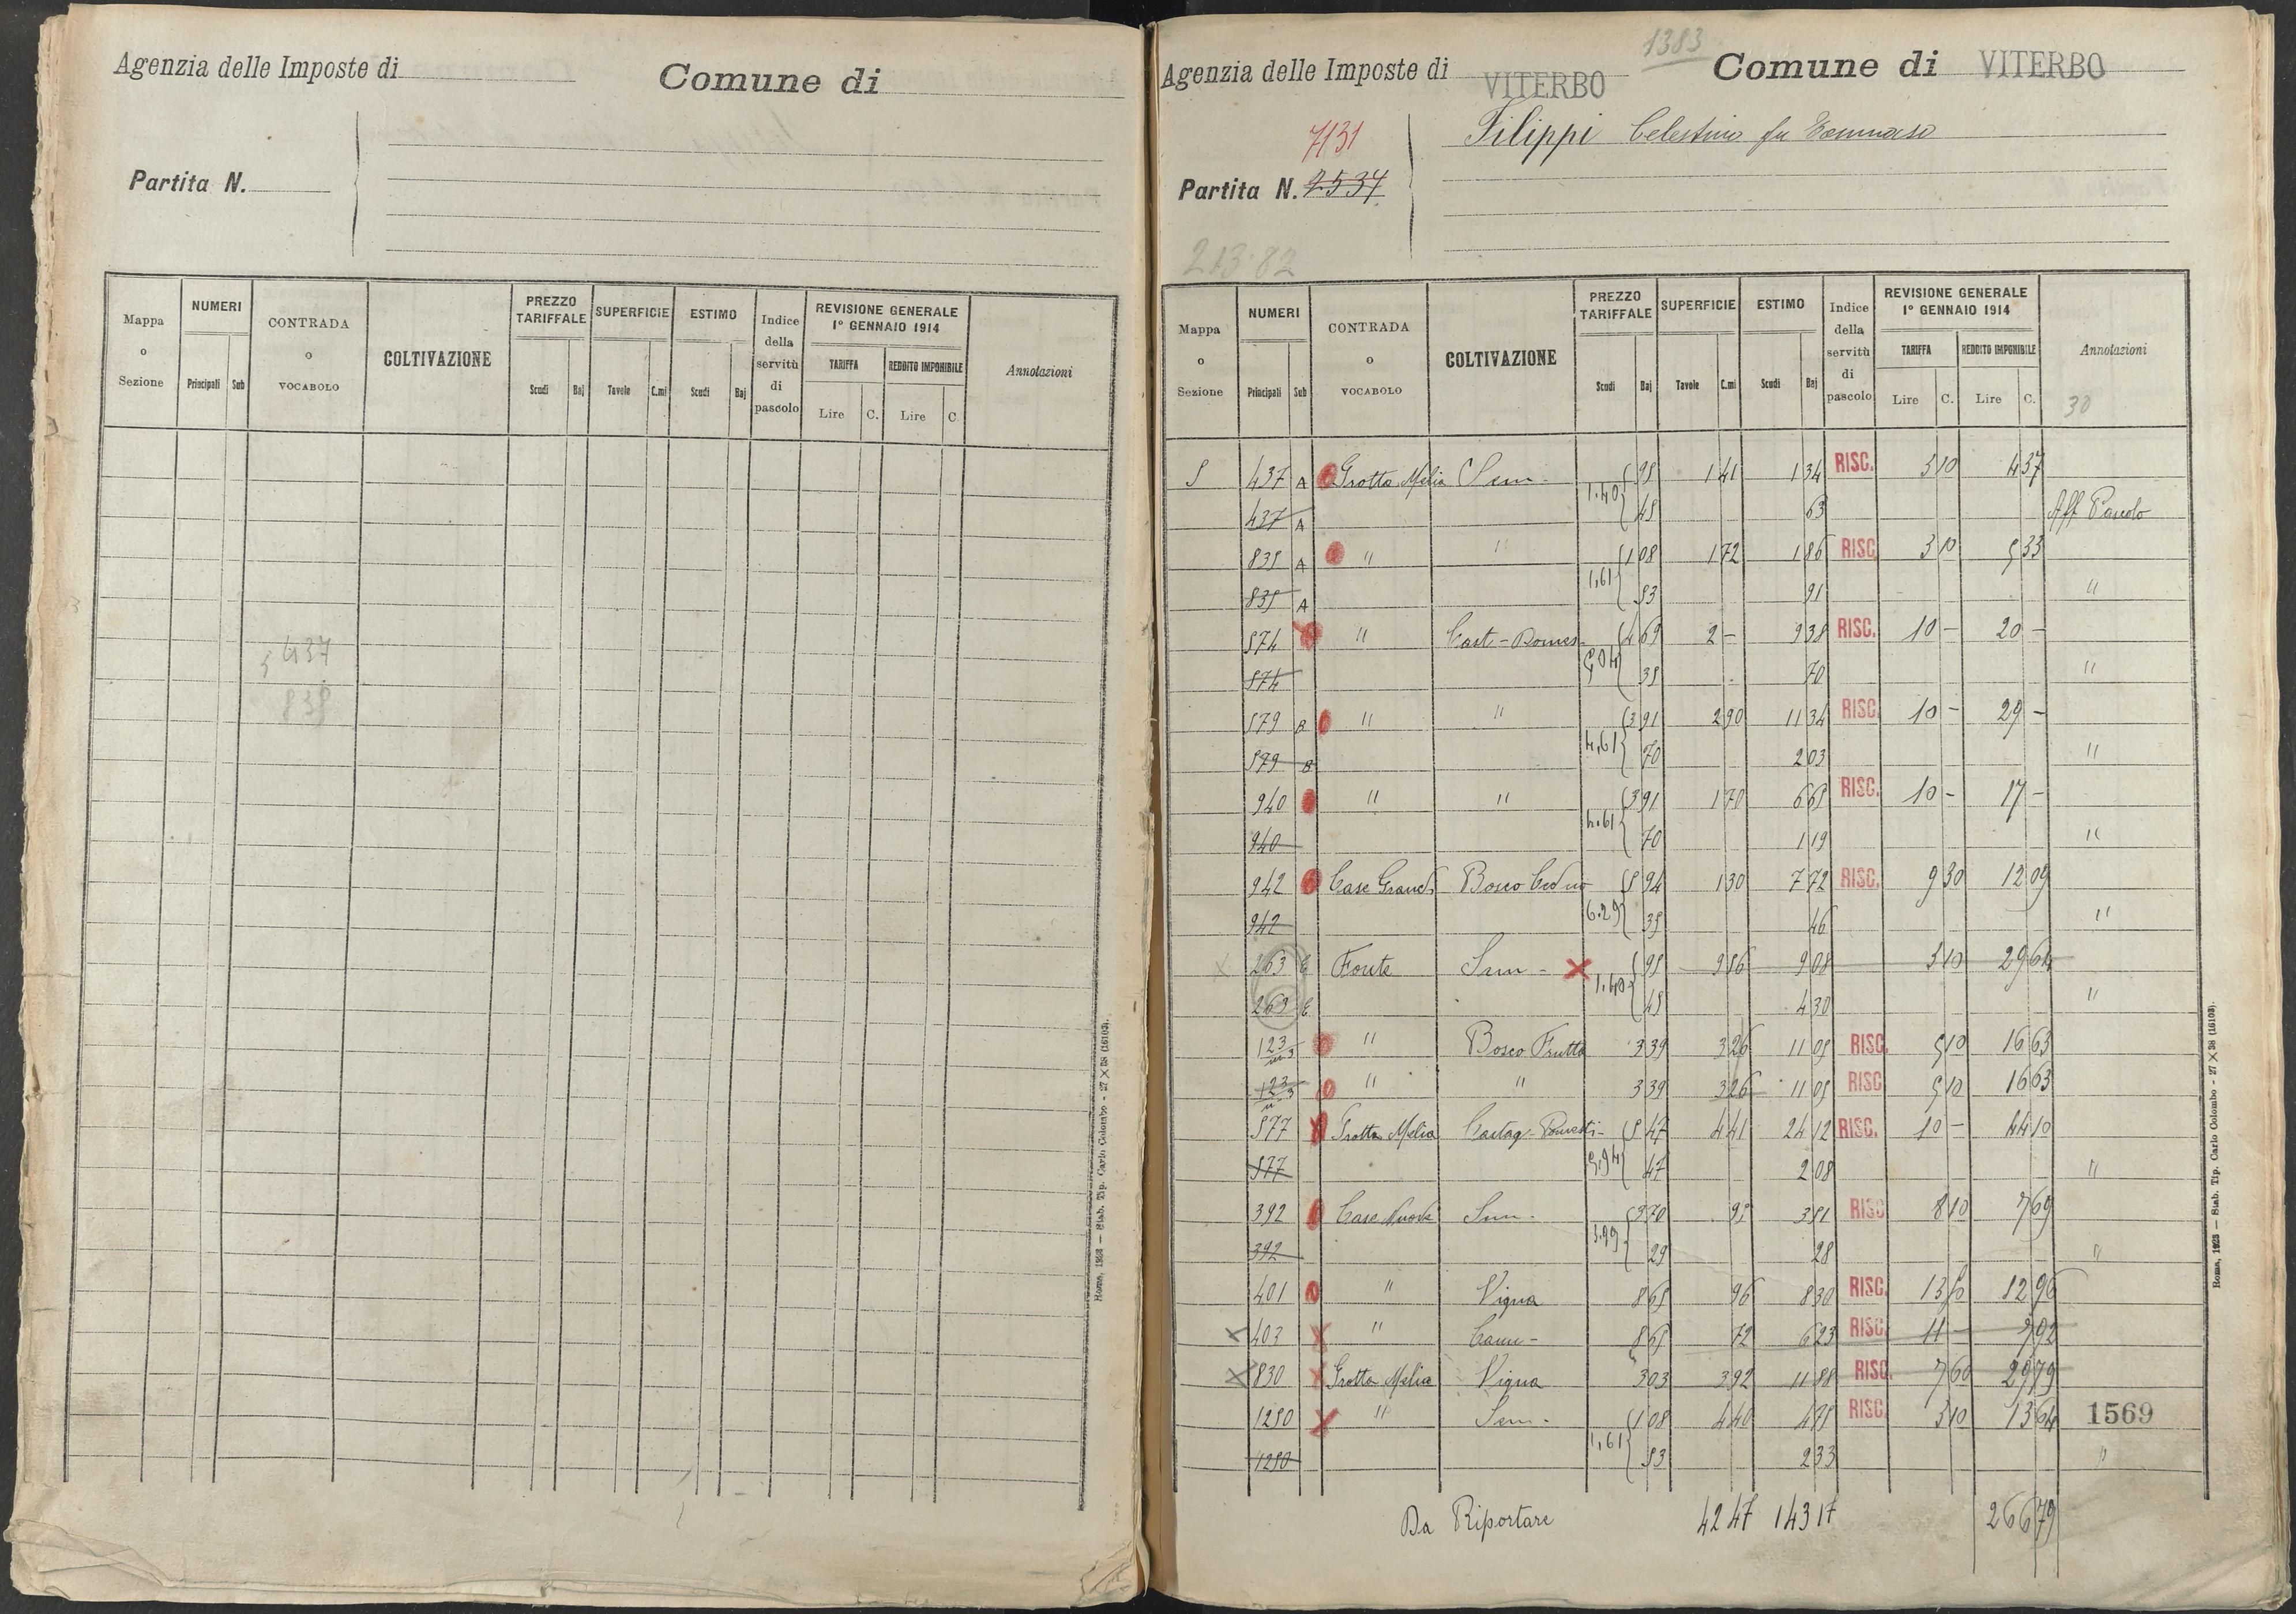 Agenzia delle Imposte di
Comune di
Partita N.
Mappa o Sezione
NUMERI
Principali Sub
CONTRADA O VOCABOLO
COLTIVAZIONE
PREZZO TARIFFALE
Scudi Baj
SUPERFICIE
Tavole C.mi
ESTIMO
Scudi Baj
Indice della servitù di pascolo
REVISIONE GENERALE 1° GENNAIO 1914
TARIFFA
Lire C.
REDDITO IMPONIBILE
Lire C
Annotazioni
5 437
835
Roma, 1928 — Stab. Tip. Carlo Colombo - 27 X 38 (16103).
1383
Agenzia delle Imposte di VITERBO
Comune di VITERBO
Filippi Celestino fu Tommaso
7131
Partita N. 2534
213.82
Mappa o Sezione
NUMERI
Principali Sub
CONTRADA O VOCABOLO
COLTIVAZIONE
PREZZO TARIFFALE
Scudi Baj
SUPERFICIE
Tavole C.mi
ESTIMO
Scudi Baj
Indice della servitù di pascolo
REVISIONE GENERALE 1° GENNAIO 1914
TARIFFA
Lire C.
REDDITO IMPONIBILE
Lire C.
Annotazioni
30
5 437 A Grotta Melia Sem - 1.40 95 1 41 1 34 RISC. 3 10 4 37
437 A 45 63 Aff Pascolo
835 A " " 1,61 1 08 1 72 1 86 RISC. 3 10 5 33
835 A 53 91 "
574 " Cast - Domes - 5,04 4 69 2 - 9 38 RISC. 10 - 20 -
574 35 70 "
579 B " " 4,61 3 91 2 90 11 34 RISC. 10 - 29 -
579 B 70 2 03 "
940 " " 4.61 3 91 1 70 6 65 RISC. 10 - 17 -
940 70 1 19 "
942 Case Grandi Bosco Ceduo 6.29 5 94 1 30 7 72 RISC. 9 30 12 09
942 35 46 "
263 E Fonte Sem - 1.40 95 9 56 9 08 3 10 29 64
263 E 45 4 30 "
123 " Bosco Frutto 3 39 3 26 11 05 RISC. 5 10 16 63
123 " " 3 39 3 26 11 05 RISC. 5 10 16 63
577 Grotta Melia Castag - Domesti - 5,94 5 47 4 41 24 12 RISC. 10 - 44 10
577 47 2 08 "
392 Case Nuove Sem - 3.99 3 70 95 3 51 RISC. 8 10 7 69
392 29 28 "
401 " Vigna 8 65 96 8 30 RISC. 13 50 12 96
403 " Cann - 8 65 72 6 23 RISC. 11 - 7 92
830 Grotta Melia Vigna 3 03 3 92 11 88 RISC. 7 60 29 79
1250 " Sem - 1,61 1 08 4 40 4 75 RISC. 3 10 13 64 1569
1250 53 2 33 "
Da Riportare 42 47 143 17 266 79
Roma, 1928 — Stab. Tip. Carlo Colombo - 27 X 38 (16103).